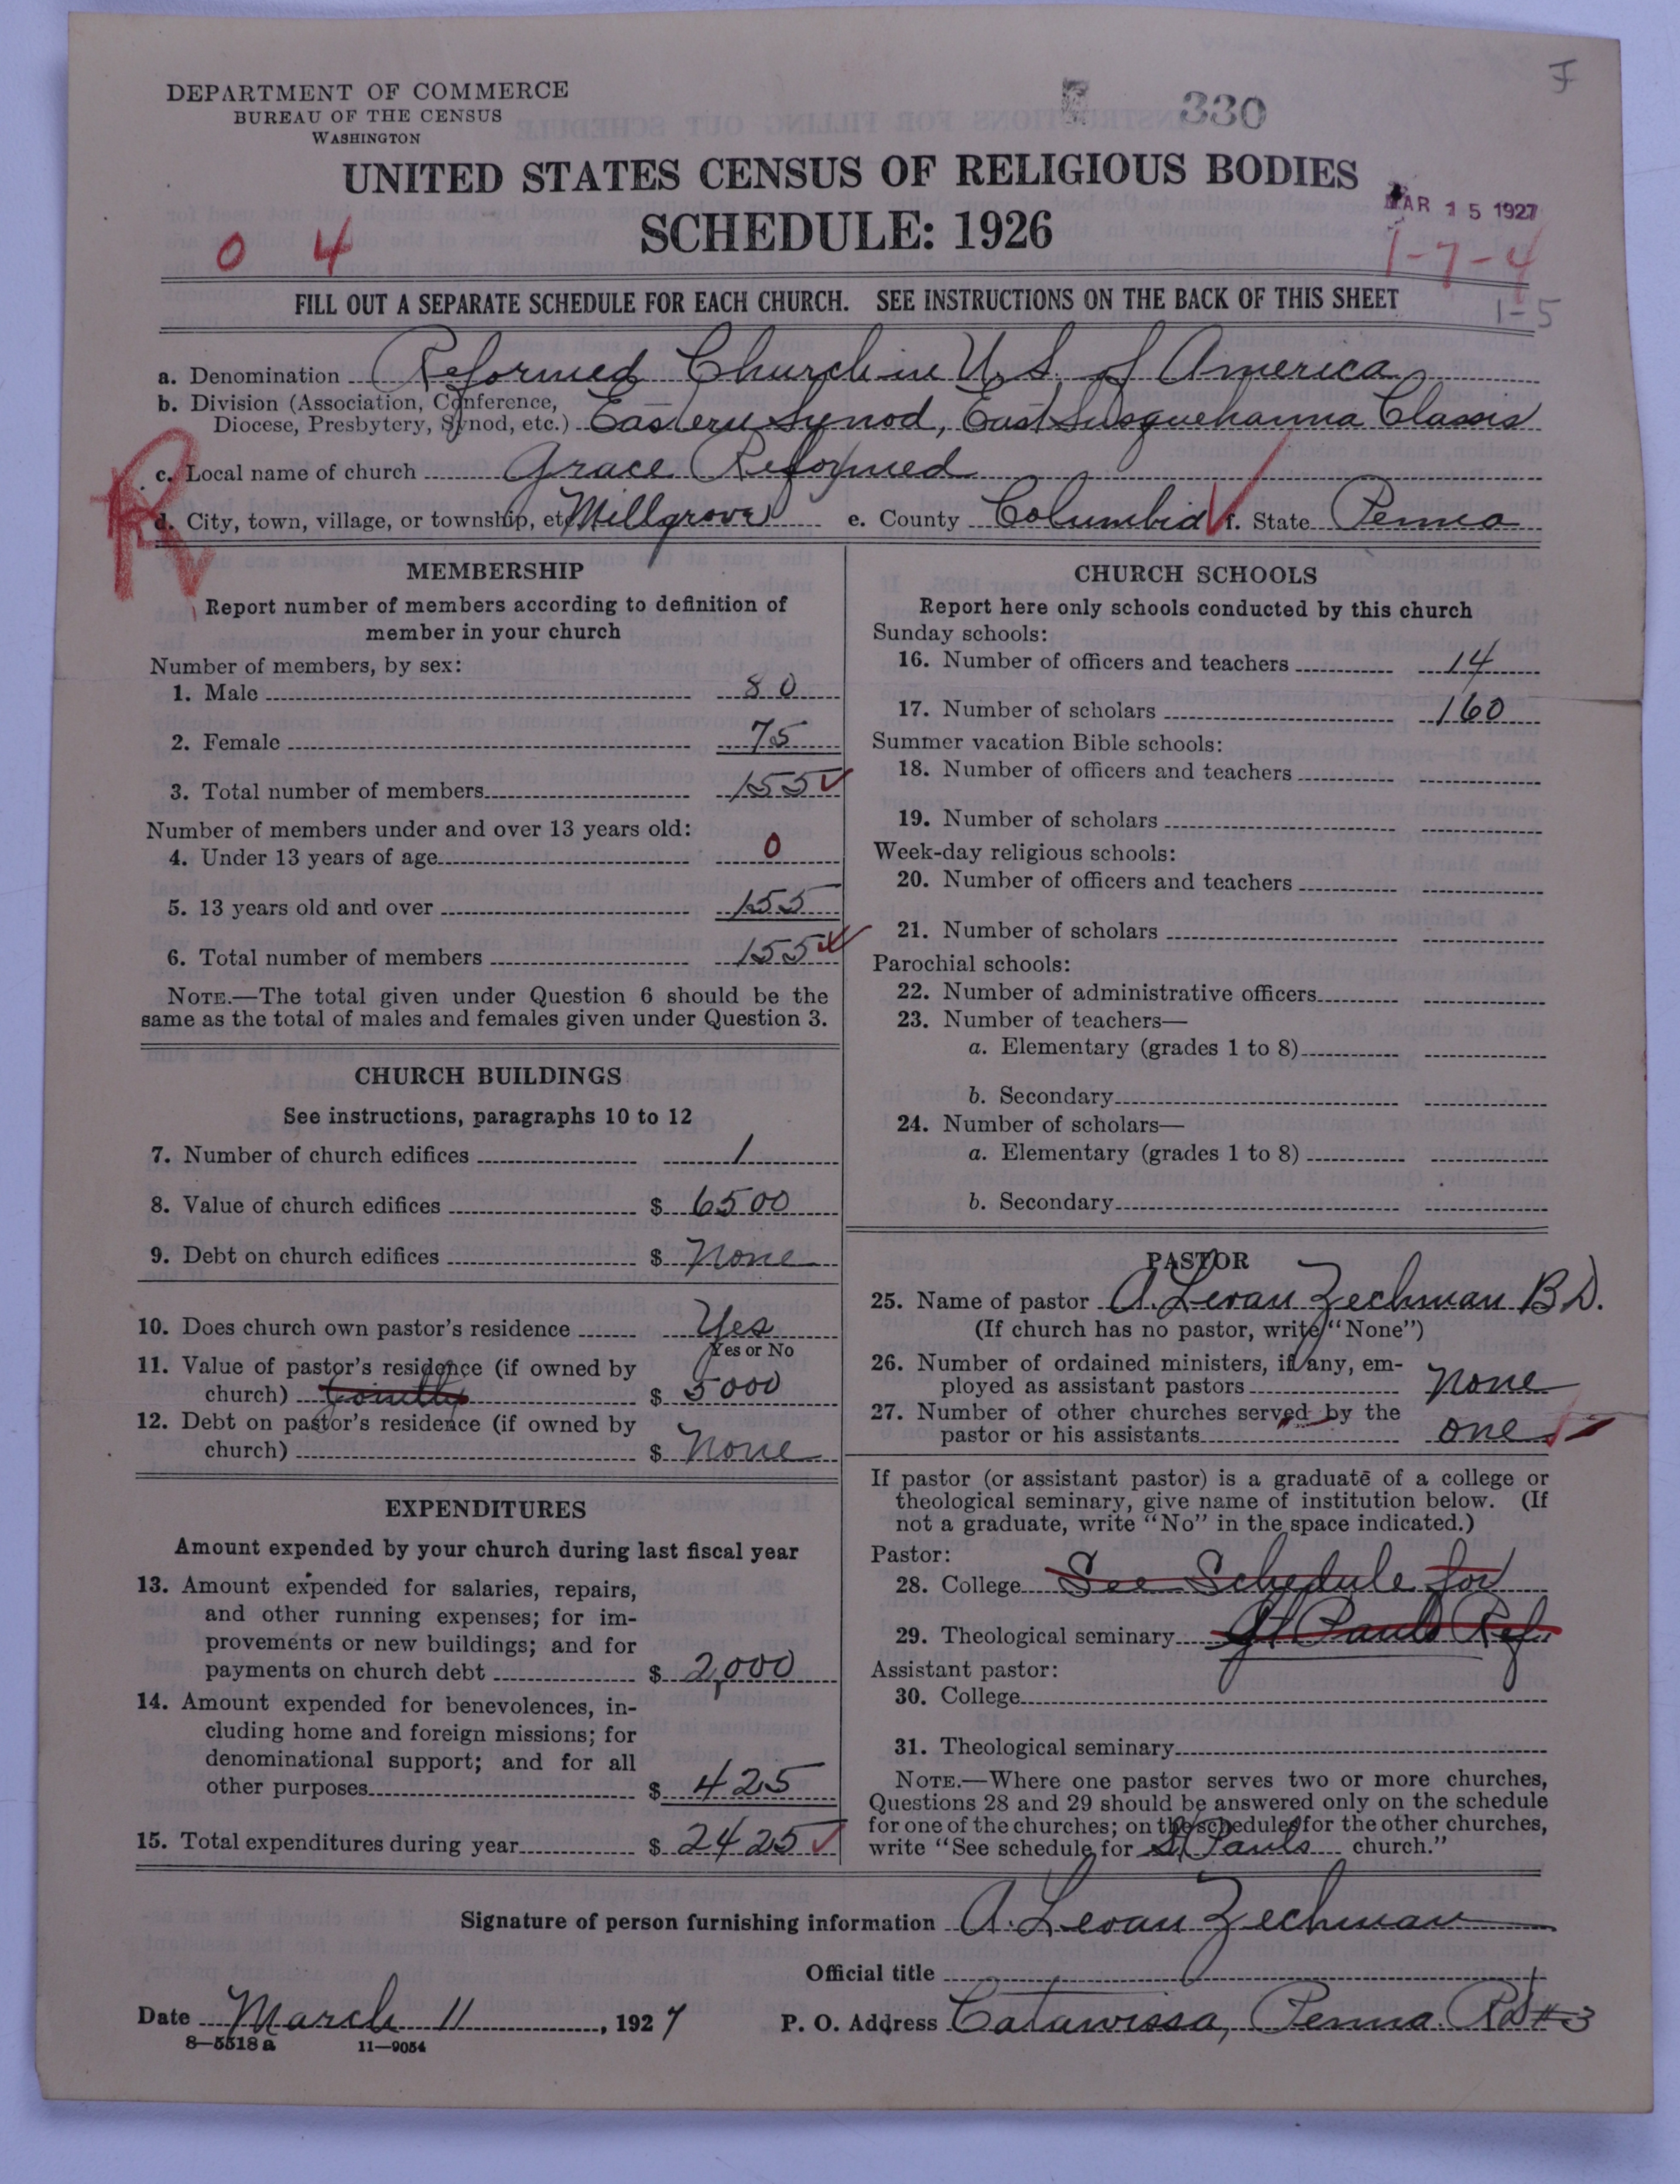 DEPARTMENT OF COMMERCE
BUREAU OF THE CENSUS
WASHINGTON
330
F
UNITED STATES CENSUS OF RELIGIOUS BODIES
SCHEDULE: 1926
MAR 15 1927
0 4
1-7-4
1-5
FILL OUT A SEPARATE SCHEDULE FOR EACH CHURCH. SEE INSTRUCTIONS ON THE BACK OF THIS SHEET
a. Denomination Reformed Church in U.S. of America
b. Division (Association, Conference,
Diocese, Presbytery, Synod, etc.) Eastern Synod, East Susquehanna Classis
c. Local name of church Grace Reformed
d. City, town, village, or township, etc Millgrove e. County Columbia f. State Penna
R
MEMBERSHIP
Report number of members according to definition of
member in your church
Number of members, by sex:
1. Male 80
2. Female 75
3. Total number of members 155
Number of members under and over 13 years old:
4. Under 13 years of age 0
5. 13 years old and over 155
6. Total number of members 155
NOTE.—The total given under Question 6 should be the
same as the total of males and females given under Question 3.
CHURCH BUILDINGS
See instructions, paragraphs 10 to 12
7. Number of church edifices 1
8. Value of church edifices $ 6500
9. Debt on church edifices $ None
10. Does church own pastor's residence Yes
Yes or No
11. Value of pastor's residence (if owned by
church) Jointly $ 5000
12. Debt on pastor's residence (if owned by
church) $ None
EXPENDITURES
Amount expended by your church during last fiscal year
13. Amount expended for salaries, repairs,
and other running expenses; for im-
provements or new buildings; and for
payments on church debt $ 2,000
14. Amount expended for benevolences, in-
cluding home and foreign missions; for
denominational support; and for all
other purposes $ 425
15. Total expenditures during year $ 2425
CHURCH SCHOOLS
Report here only schools conducted by this church
Sunday schools:
16. Number of officers and teachers 14
17. Number of scholars 160
Summer vacation Bible schools:
18. Number of officers and teachers
19. Number of scholars
Week-day religious schools:
20. Number of officers and teachers
21. Number of scholars
Parochial schools:
22. Number of administrative officers
23. Number of teachers—
a. Elementary (grades 1 to 8)
b. Secondary
24. Number of scholars—
a. Elementary (grades 1 to 8)
b. Secondary
PASTOR
25. Name of pastor A. Levan Zechman B.D.
(If church has no pastor, write "None")
26. Number of ordained ministers, if any, em-
ployed as assistant pastors None
27. Number of other churches served by the
pastor or his assistants one
If pastor (or assistant pastor) is a graduate of a college or
theological seminary, give name of institution below. (If
not a graduate, write "No" in the space indicated.)
Pastor:
28. College See Schedule for
29. Theological seminary St Pauls Ref.
Assistant pastor:
30. College
31. Theological seminary
NOTE.—Where one pastor serves two or more churches,
Questions 28 and 29 should be answered only on the schedule
for one of the churches; on the schedules for the other churches,
write "See schedule for St Pauls church."
Signature of person furnishing information A. Levan Zechman
Official title
Date March 11, 1927 P. O. Address Catawissa, Penna. Rd #3
8—5518 a 11—9054